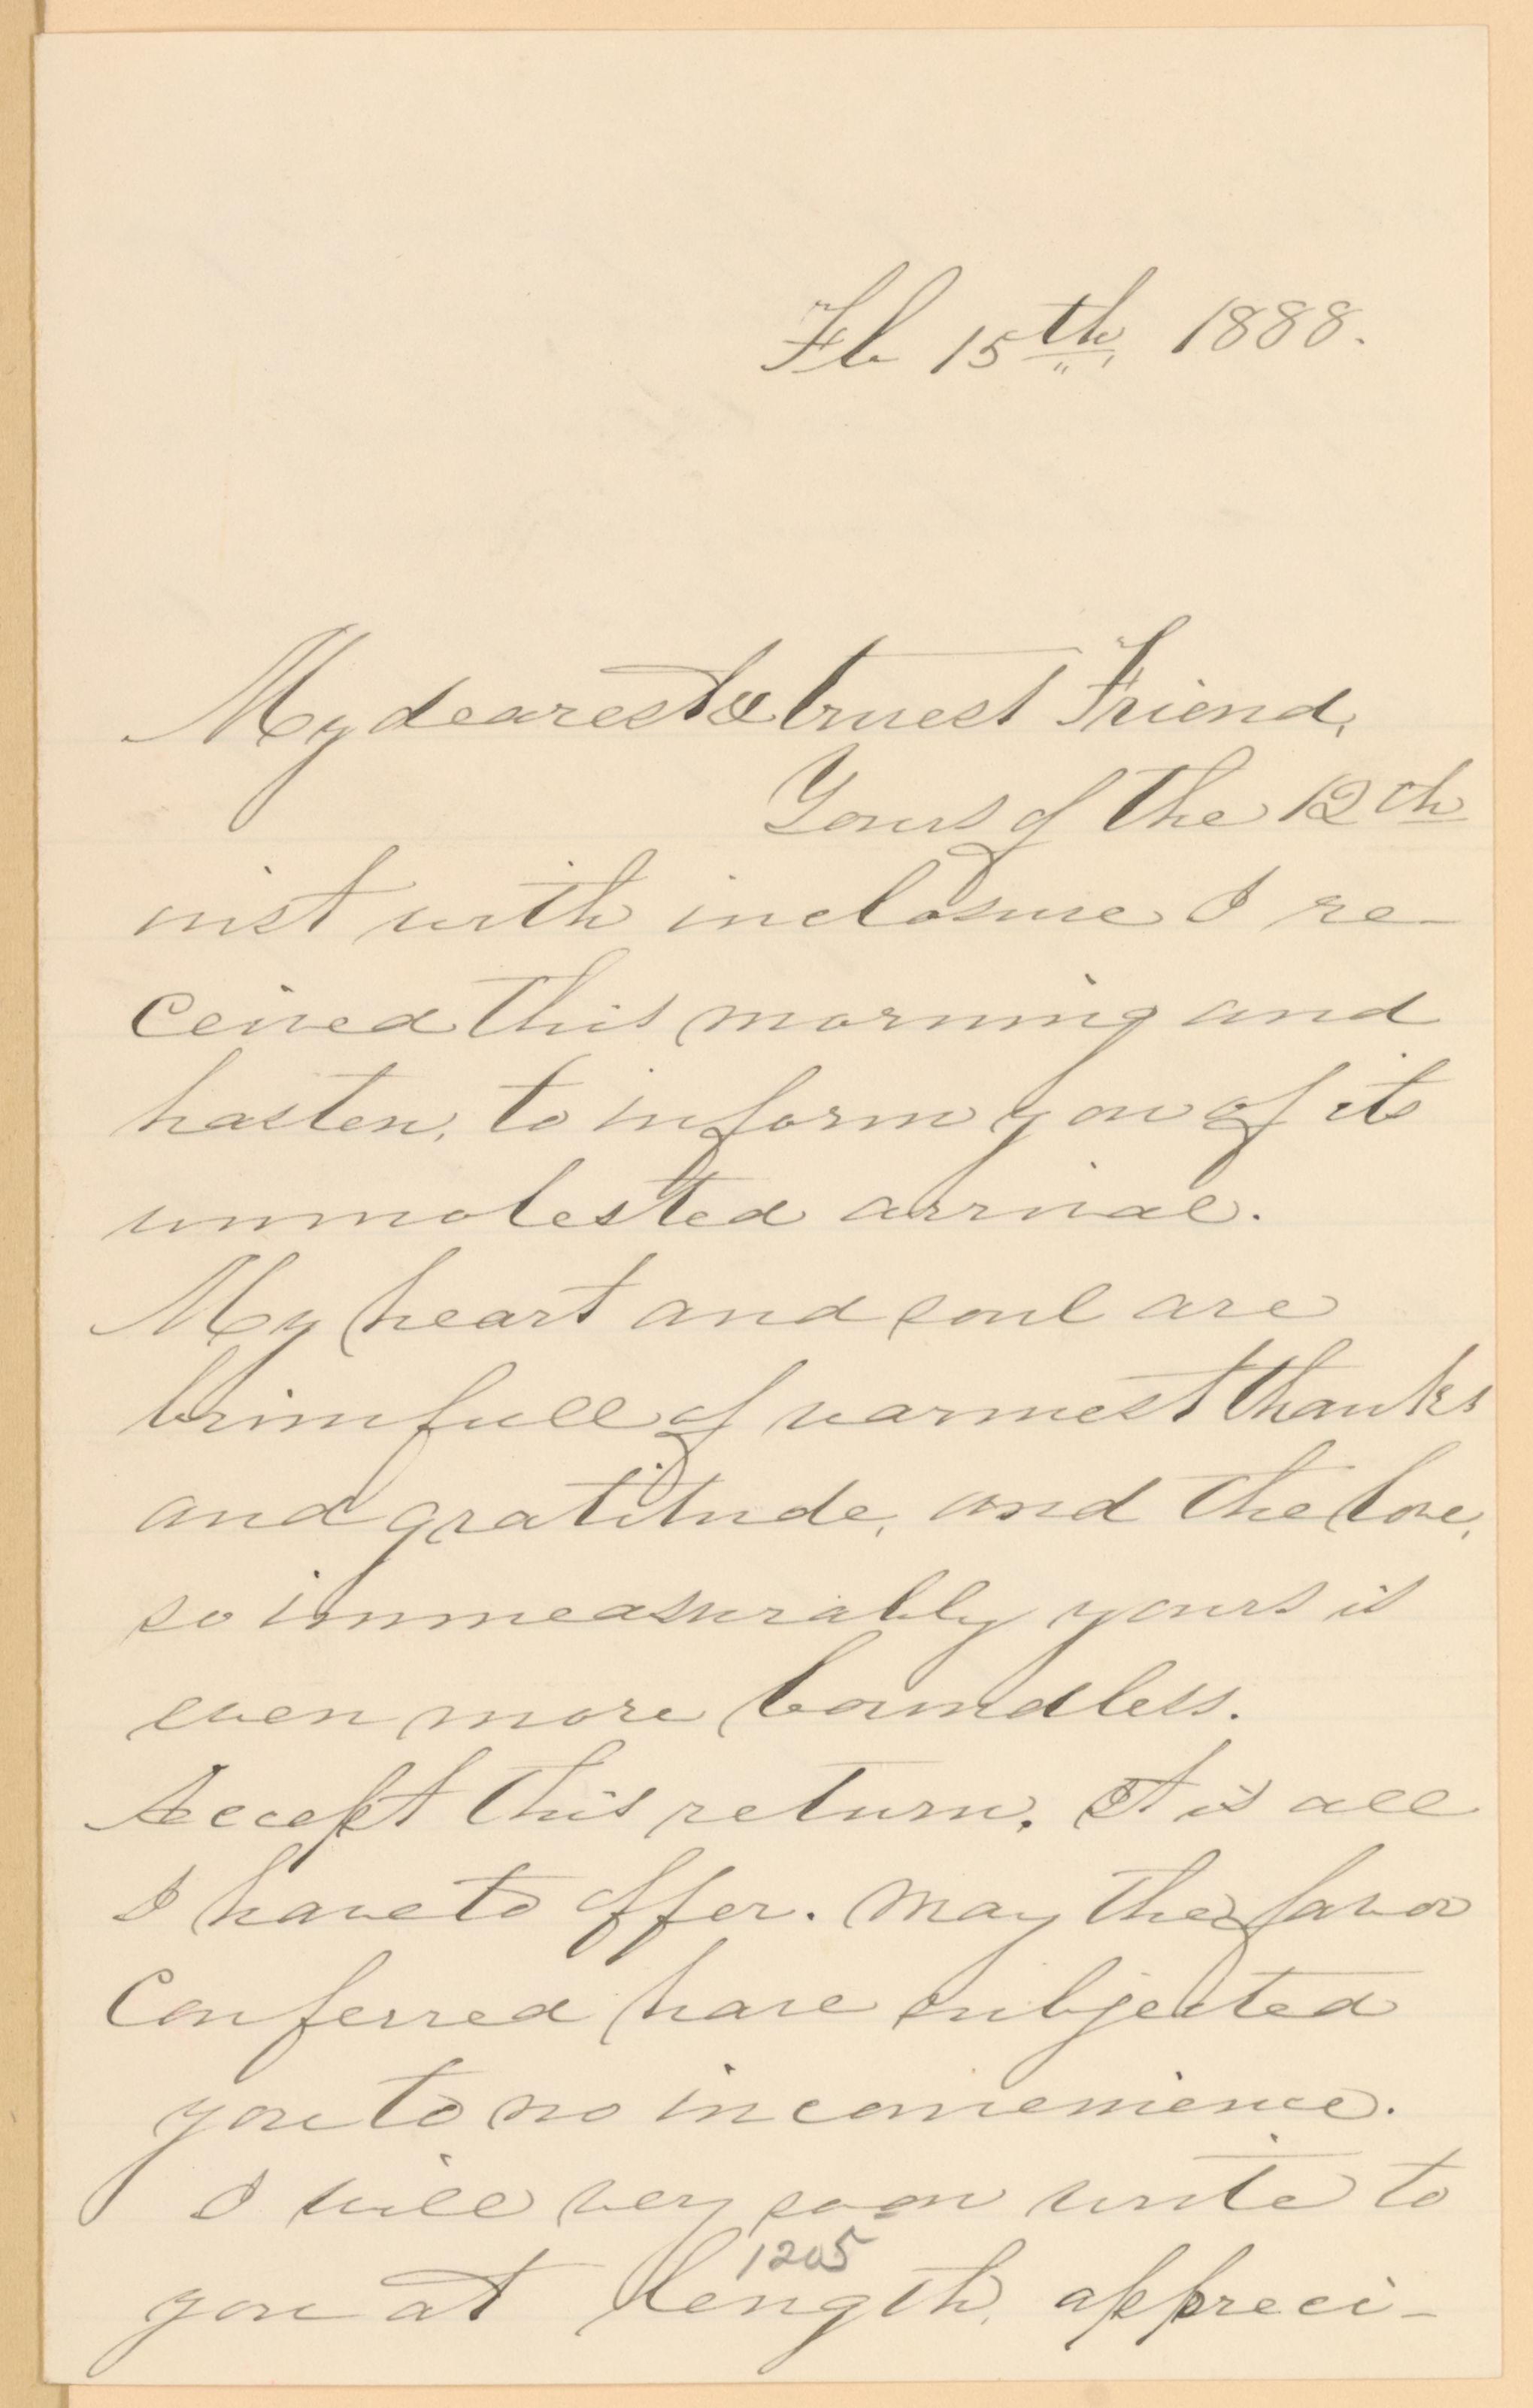 Fb 15th, 1888.
My dearest & truest Friend,
Yours of the 12th
inst with inclosure I re-
ceived this morning and
hasten, to inform you of its
unmolested arrival.
My heart and soul are
brimfull of warmest thanks
and gratitude, and the love,
so immeasurably yours is
even more boundless.
Accept this return. It is all
I have to offer. May the favor
Conferred have subjected
you to no inconvenience.
I will very soon write to
1205
you at length, appreci-